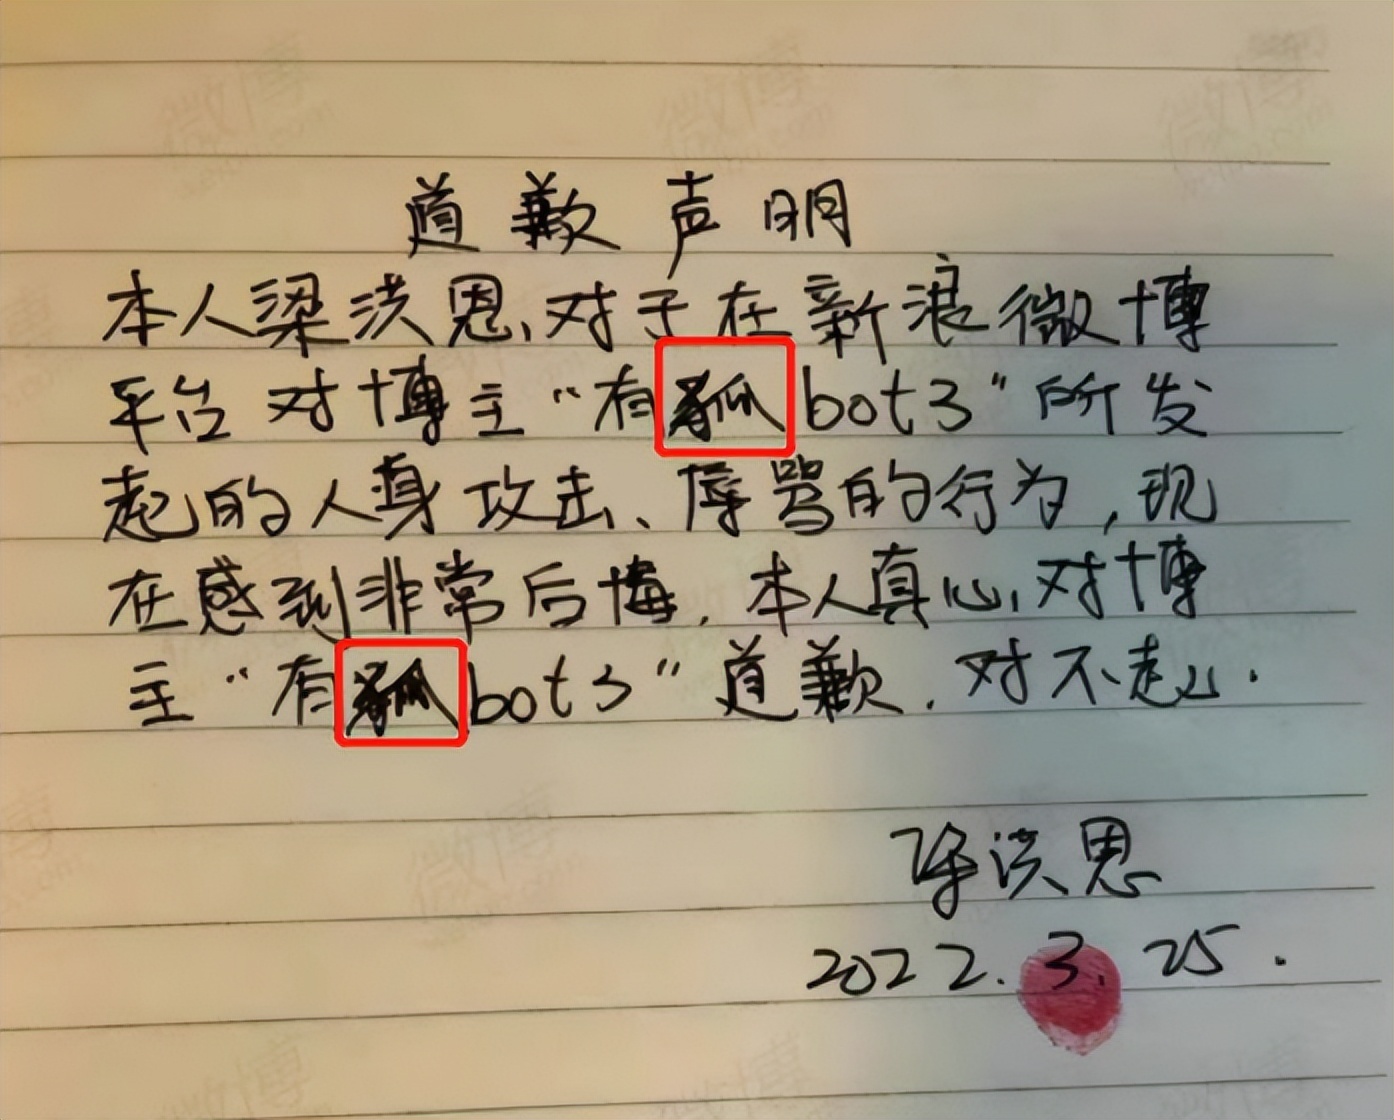 道歉声明
本人梁洪恩、对于在新浪微博
平台对博主“有狐bot3”所发
起的人身攻击、辱骂的行为,现
在感到非常后悔.本人真心对博
主“有狐bot3”道歉.对不起.
洪恩
2022.3.25.